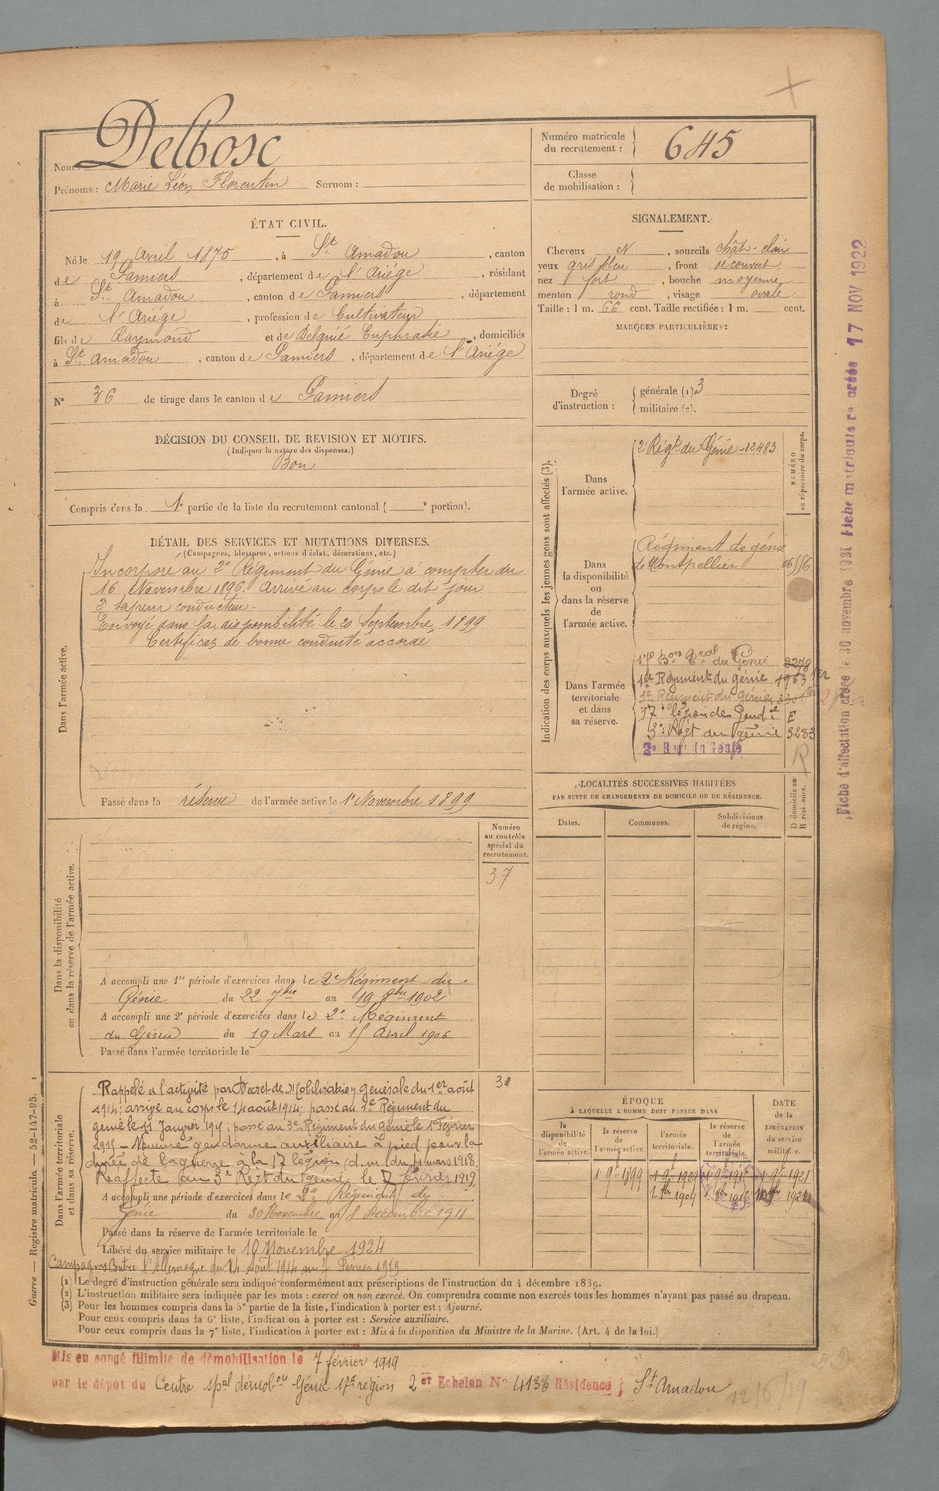 Nom : Delbosc
Prénoms : Marie Léon Florentin Surnom :
Numéro matricule du recrutement : 645
Classe de mobilisation :
ÉTAT CIVIL.
Né le 19 avril 1875, à St Amadou, canton
de Pamiers, département de l'Ariége, résidant
à St Amadou, canton de Pamiers, département
de l'Ariége, profession de Cultivateur
fils de Raymond et de Delguié Euphrasie, domiciliés
à St Amadou, canton de Pamiers, département de l'Ariége
N° 36 de tirage dans le canton de Pamiers
DÉCISION DU CONSEIL DE REVISION ET MOTIFS.
(Indiquer la nature des dispenses.)
Bon
Compris dans la 1e partie de la liste du recrutement cantonal ( e portion).
SIGNALEMENT.
Cheveux N, sourcils chât-clair
yeux gris bleu, front découvert
nez fort, bouche moyenne
menton rond, visage ovale
Taille : 1 m. 66 cent. Taille rectifiée : 1 m. cent.
MARQUES PARTICULIÈRES :
Degré d'instruction : générale (1) 3
militaire (2).
DÉTAIL DES SERVICES ET MUTATIONS DIVERSES.
(Campagnes, blessures, actions d'éclat, décorations, etc.)
Dans l'armée active.
Incorporé au 2e Régiment du Génie à compter du
16 Novembre 1896. Arrivé au corps le dit jour
2e sapeur conducteur.
Envoyé dans la disponibilité le 20 Septembre 1899
Certificat de bonne conduite accordé
Passé dans la réserve de l'armée active le 1er Novembre 1899
Indication des corps auxquels les jeunes gens sont affectés (3).
NUMÉRO au répertoire du corps.
Dans l'armée active.
2e Régt du Génie 12483
Dans la disponibilité ou dans la réserve de l'armée active.
Régiment de génie
de Montpellier
Dans l'armée territoriale et dans sa réserve.
17e Bon Tal du Génie 2279
1er Régiment du génie 1963
2e Régiment du Génie
17e légion de Gend. E
3e Régt du génie 3283
2e Reg. du Génie
R
Dans la disponibilité ou dans la réserve de l'armée active.
Numéro au contrôle spécial du recrutement.
37
A accompli une 1re période d'exercices dans le 2e Régiment du
Génie du 22 7bre au 19 8bre 1902
A accompli une 2e période d'exercices dans le 2e Régiment
du Génie du 19 Mars au 15 Avril 1906
Passé dans l'armée territoriale le
LOCALITÉS SUCCESSIVES HABITÉES
PAR SUITE DE CHANGEMENTS DE DOMICILE OU DE RÉSIDENCE.
Dates. Communes. Subdivisions de région. D domicile ou R résidence.
Dans l'armée territoriale et dans sa réserve.
Rappelé à l'activité par Décret de Mobilisation générale du 1er août
1914; arrivé au corps le 14 août 1914; passé au 1er Régiment du
génie le 11 Janvier 191; passé au 3e Régiment du génie le 1er Février
1915 - Nommé gendarme auxiliaire à pied pour la
durée de la guerre à la 17 légion (d. m. du 4 mars 1918.
Réaffecté au 3e Régt du génie le 7 février 1919
A accompli une période d'exercices dans le 2e Régiment du
Génie du 30 Novembre au 8 Décembre 1911
Passé dans la réserve de l'armée territoriale le
Libéré du service militaire le 10 Novembre 1924
Campagnes Contre l'Allemagne du 14 Août 1914 au 7 Février 1919
ÉPOQUE
À LAQUELLE L'HOMME DOIT PASSER DANS
la disponibilité de l'armée active. la réserve de l'armée active. l'armée territoriale. la réserve de l'armée territoriale. DATE de la LIBÉRATION du service militaire.
1 9bre 1899
(1) Le degré d'instruction générale sera indiqué conformément aux prescriptions de l'instruction du 4 décembre 1889.
(2) L'instruction militaire sera indiquée par les mots : exercé ou non exercé. On comprendra comme non exercés tous les hommes n'ayant pas passé au drapeau.
(3) Pour les hommes compris dans la 5e partie de la liste, l'indication à porter est : Ajourné.
Pour ceux compris dans la 6e liste, l'indication à porter est : Service auxiliaire.
Pour ceux compris dans la 7e liste, l'indication à porter est : Mis à la disposition du Ministre de la Marine. (Art. 4 de la loi.)
Mis en congé illimité de démobilisation le 7 février 1919
par le dépôt du Centre spal démobon Génie 17e région 2er Echelon N° 4138 Résidence St Amadou
Guerre — Registre matricule. — 52-147-95.
Fiche d'affectation créée le 30 novembre 1921 Fiche matriculaire créée 17 NOV 1922